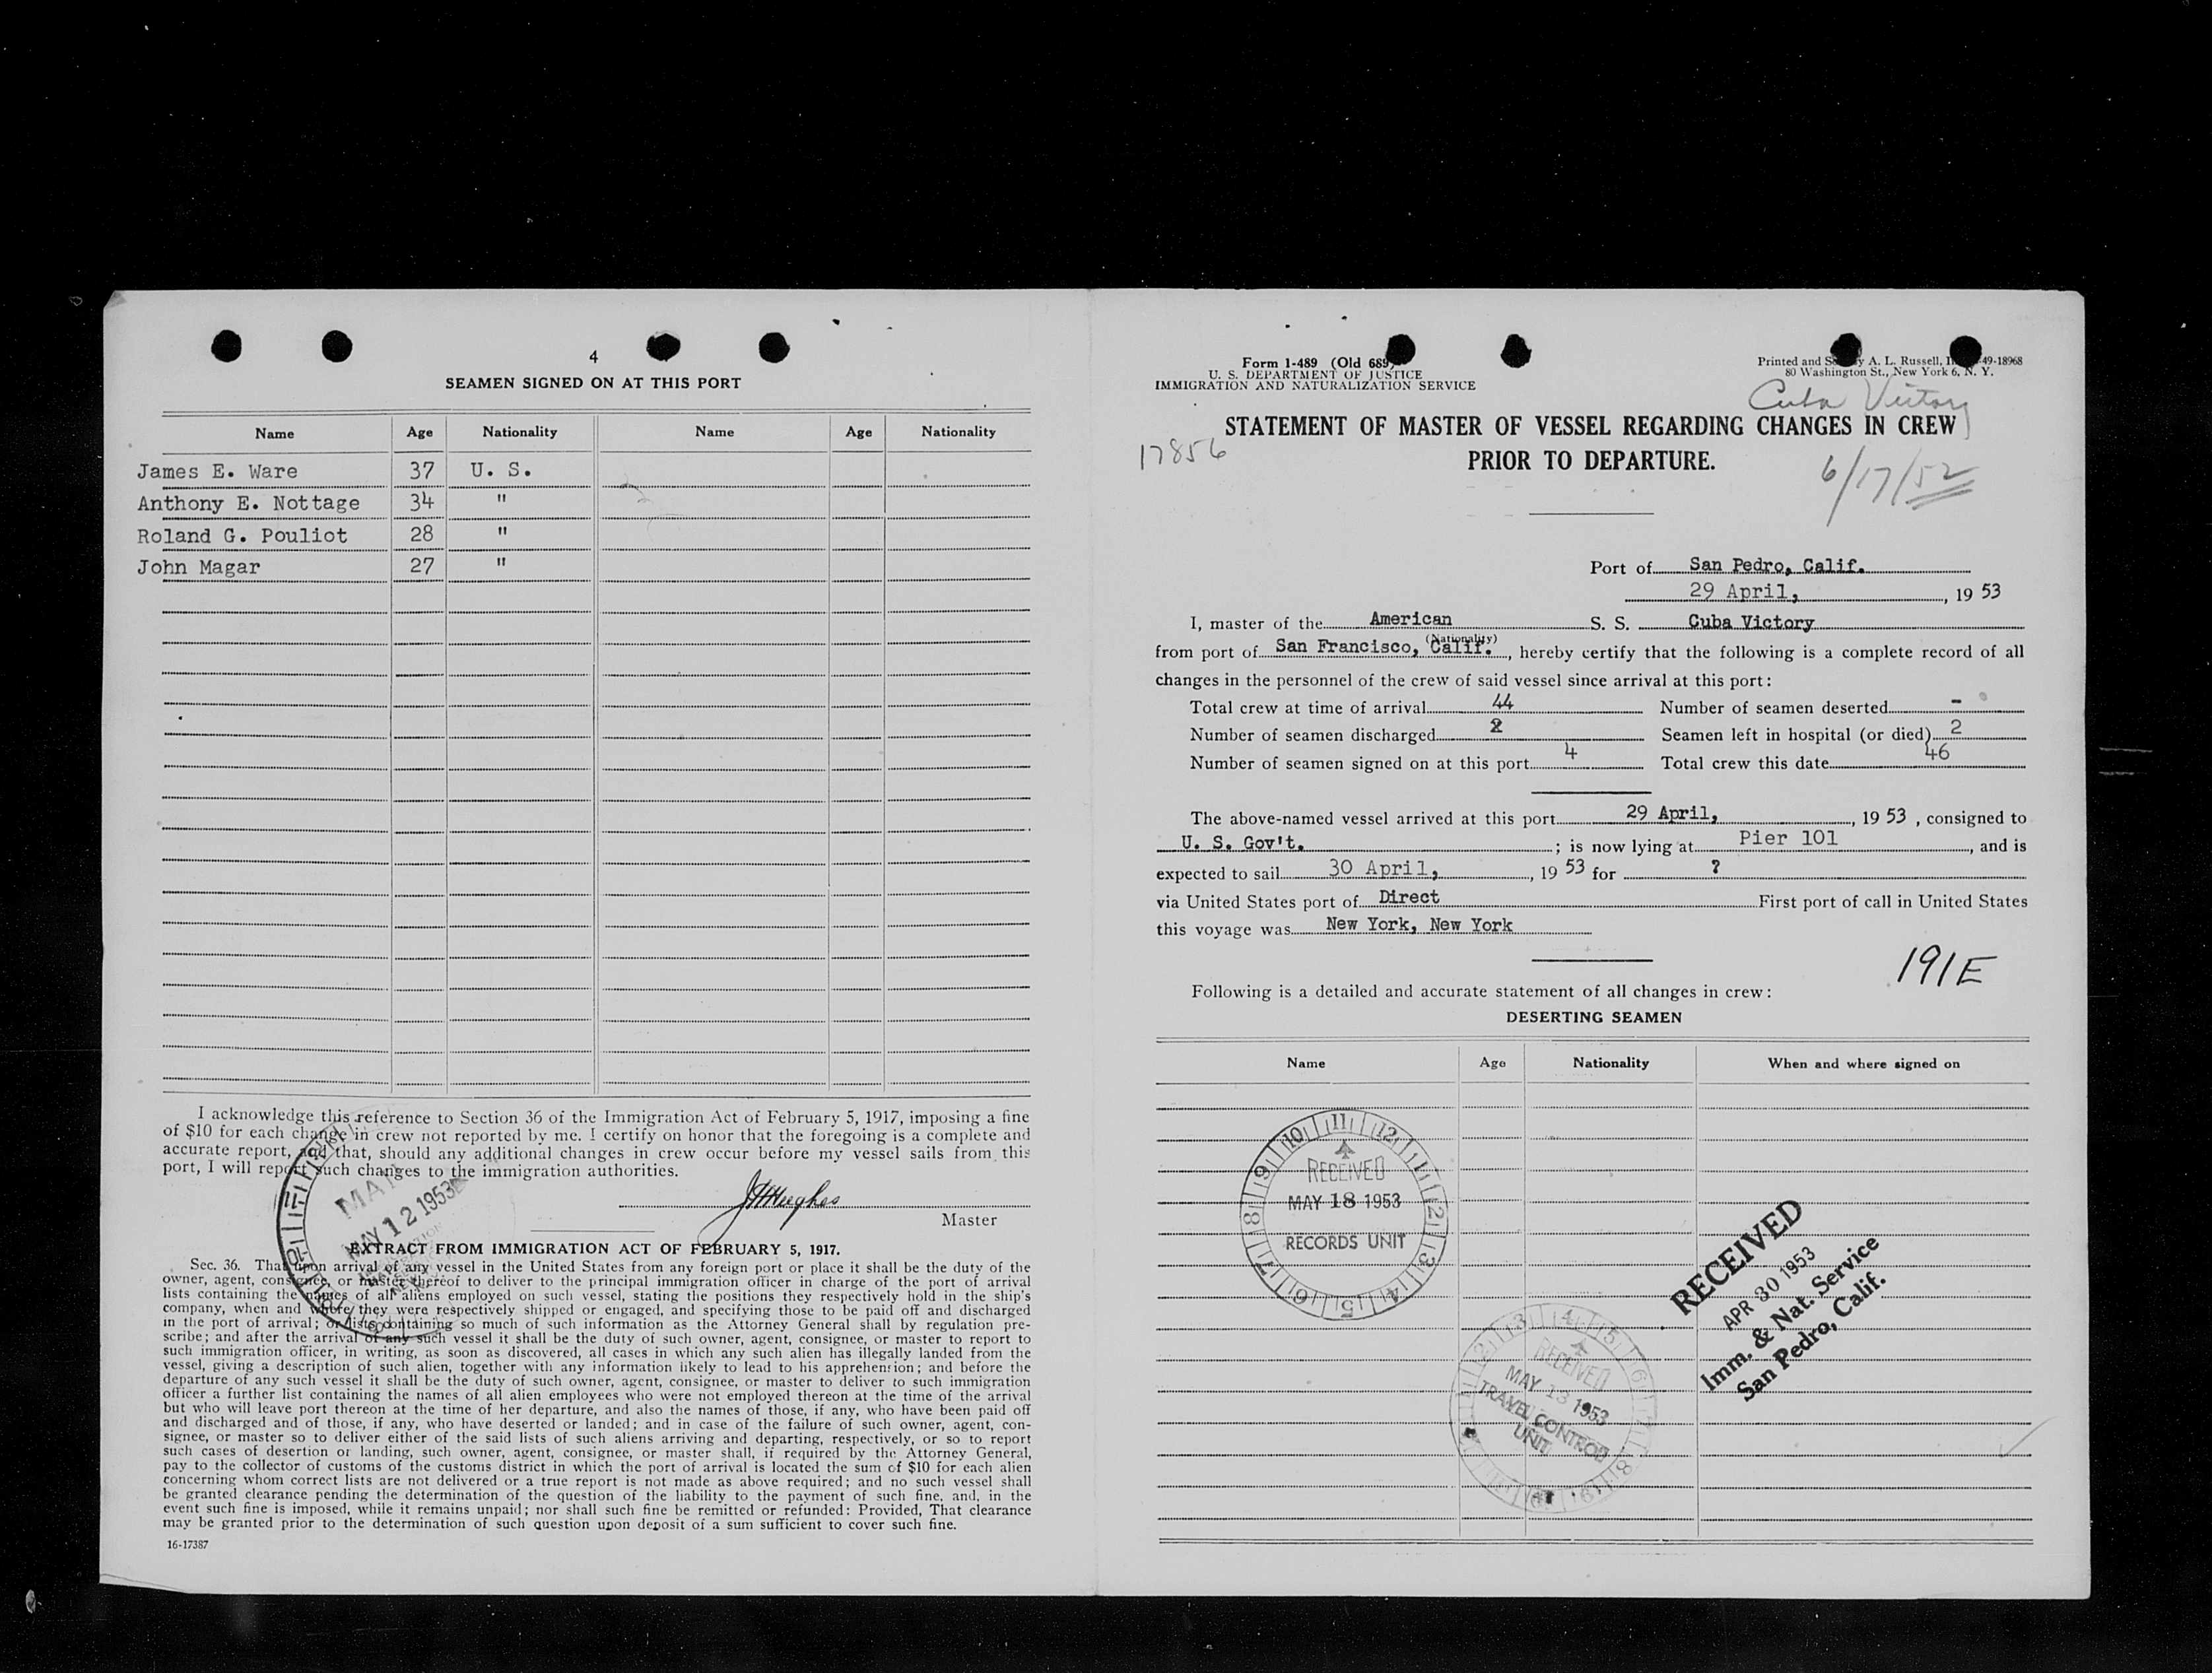 4
SEAMEN SIGNED ON AT THIS PORT
Name Age Nationality Name Age Nationality
James E. Ware 37 U. S.
Anthony E. Nottage 34 "
Roland G. Pouliot 28 "
John Magar 27 "
I acknowledge this reference to Section 36 of the Immigration Act of February 5, 1917, imposing a fine
of $10 for each change in crew not reported by me. I certify on honor that the foregoing is a complete and
accurate report, and that, should any additional changes in crew occur before my vessel sails from this
port, I will report such changes to the immigration authorities.
MAY 12 1953
Master
EXTRACT FROM IMMIGRATION ACT OF FEBRUARY 5, 1917.
Sec. 36. That upon arrival of any vessel in the United States from any foreign port or place it shall be the duty of the
owner, agent, consignee, or master thereof to deliver to the principal immigration officer in charge of the port of arrival
lists containing the names of all aliens employed on such vessel, stating the positions they respectively hold in the ship's
company, when and where they were respectively shipped or engaged, and specifying those to be paid off and discharged
in the port of arrival; or lists containing so much of such information as the Attorney General shall by regulation pre-
scribe; and after the arrival of any such vessel it shall be the duty of such owner, agent, consignee, or master to report to
such immigration officer, in writing, as soon as discovered, all cases in which any such alien has illegally landed from the
vessel, giving a description of such alien, together with any information likely to lead to his apprehension; and before the
departure of any such vessel it shall be the duty of such owner, agent, consignee, or master to deliver to such immigration
officer a further list containing the names of all alien employees who were not employed thereon at the time of the arrival
but who will leave port thereon at the time of her departure, and also the names of those, if any, who have been paid off
and discharged and of those, if any, who have deserted or landed; and in case of the failure of such owner, agent, con-
signee, or master so to deliver either of the said lists of such aliens arriving and departing, respectively, or so to report
such cases of desertion or landing, such owner, agent, consignee, or master shall, if required by the Attorney General,
pay to the collector of customs of the customs district in which the port of arrival is located the sum of $10 for each alien
concerning whom correct lists are not delivered or a true report is not made as above required; and no such vessel shall
be granted clearance pending the determination of the question of the liability to the payment of such fine, and, in the
event such fine is imposed, while it remains unpaid; nor shall such fine be remitted or refunded: Provided, That clearance
may be granted prior to the determination of such question upon deposit of a sum sufficient to cover such fine.
16-17387
Form 1-489 (Old 689)
U. S. DEPARTMENT OF JUSTICE
IMMIGRATION AND NATURALIZATION SERVICE
Printed and A. L. Russell, 49-18968
80 Washington St., New York 6, N. Y.
Cuba Victory
STATEMENT OF MASTER OF VESSEL REGARDING CHANGES IN CREW
PRIOR TO DEPARTURE.
17856
6/17/52
Port of San Pedro, Calif.
29 April, 19 53
I, master of the American S. S. Cuba Victory
(Nationality)
from port of San Francisco, Calif., hereby certify that the following is a complete record of all
changes in the personnel of the crew of said vessel since arrival at this port:
Total crew at time of arrival 44 Number of seamen deserted -
Number of seamen discharged 2 Seamen left in hospital (or died) 2
Number of seamen signed on at this port 4 Total crew this date 46
The above-named vessel arrived at this port 29 April, , 19 53 , consigned to
U. S. Gov't. ; is now lying at Pier 101 , and is
expected to sail 30 April, , 19 53 for ?
via United States port of Direct First port of call in United States
this voyage was New York, New York
191E
Following is a detailed and accurate statement of all changes in crew:
DESERTING SEAMEN
Name Age Nationality When and where signed on
RECEIVED
MAY 18 1953
RECORDS UNIT
RECEIVED
MAY 13 1953
TRAVEL CONTROL
UNIT
RECEIVED
APR 30 1953
Imm. & Nat. Service
San Pedro, Calif.